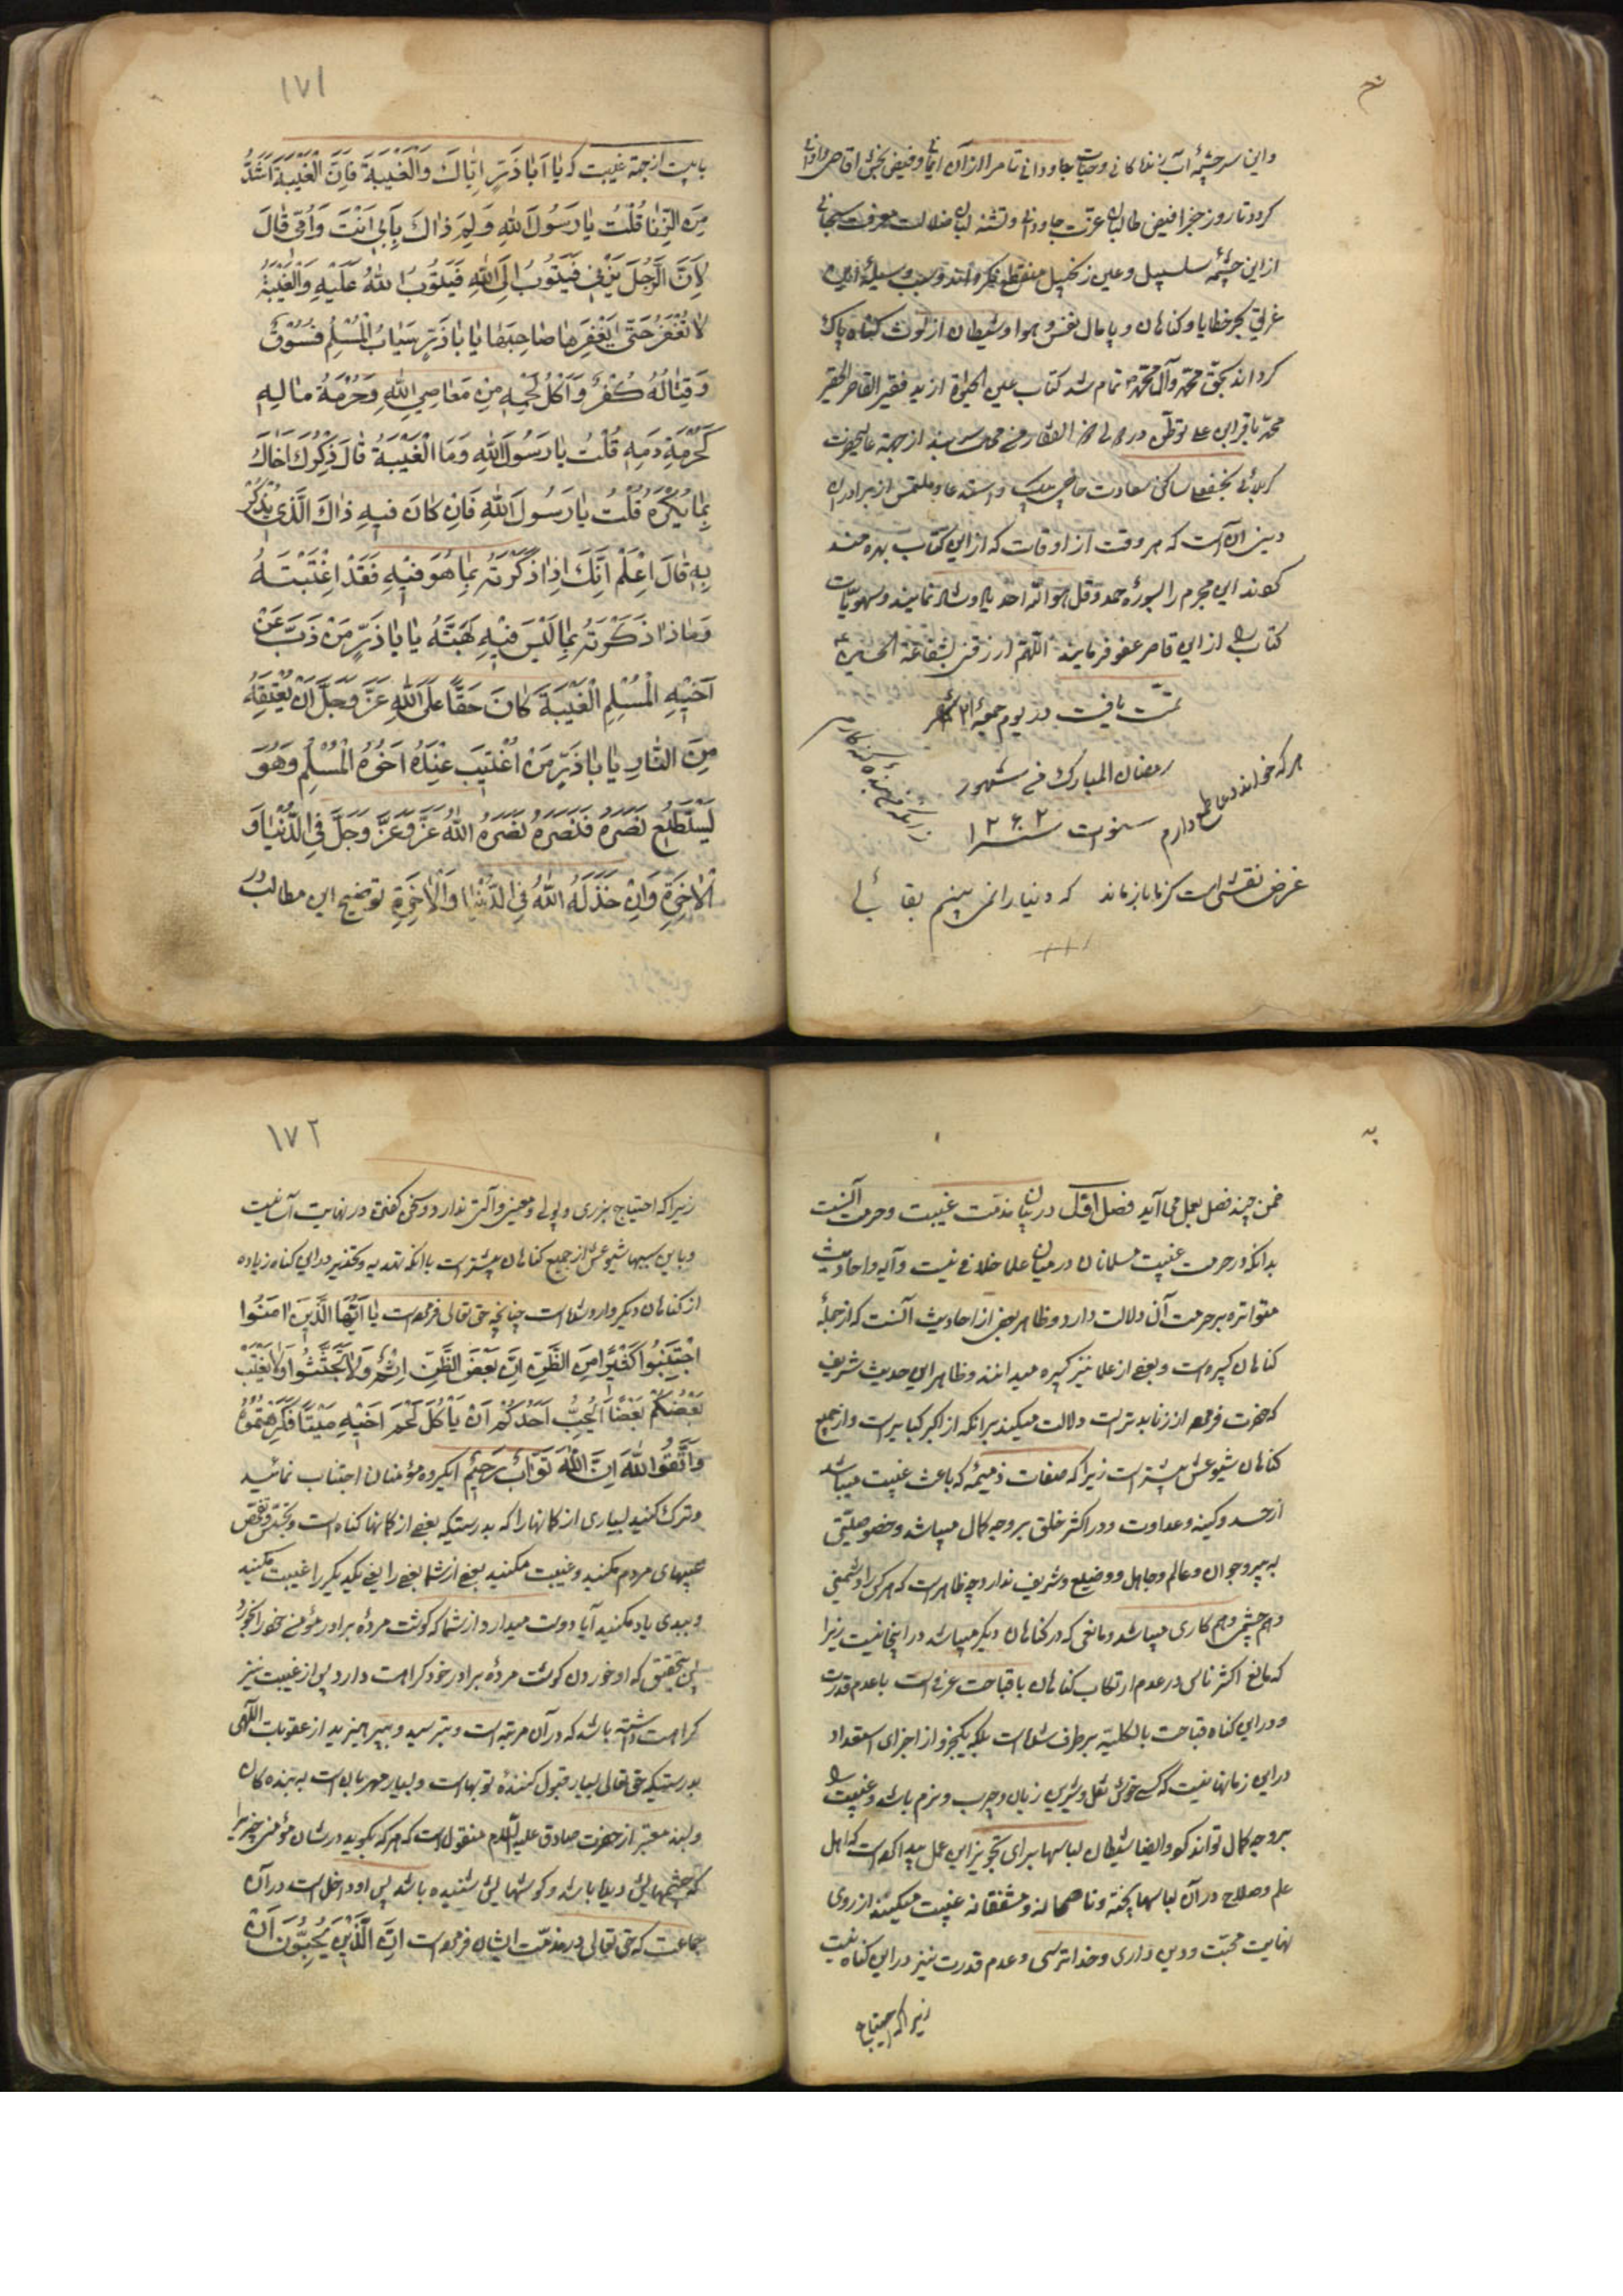 واین سرچشمهٔ آب زندکانی وحیات جاودانی تا مرا از آن
کردد تا روز جزا فیض طالبان عزت جاودانی وتشنه لبان ضلالت معرفت سبحانی
از این چشمه سلسبیل وعین زنجبیل منقطع نکرداند وسبب وسیلهٔ این
غریق بحر خطایا وکناهان وپامال نفس وهوا وشیطان از لوث کناه پاک
کرداند بحق محمد وآل محمد تمام شد کتاب عین الحیوة از ید فقیر القاصر الحقیر
محمد باقر ابن علی توطن در
کربلائی نجفقلی ساکن سعادت واستدعا وملتمس از برادران
دینی آن است که هر وقت از اوقات که از این کتاب بهره مند
کردند این مجرم را بسورهٔ حمد وقل هو الله احد یاد وشاد نمایند وسهویات
کتاب را از این قاصر عفو فرمایند اللهم ارزقنی شفاعة الحسین
تمت یافت در یوم جمعه ۲۱ شهر
رمضان المبارک فی شهور
سنوات سنه ۱۲۶۲
هر که خواند دعا طمع دارم
زانکه من بندهٔ کنه کارم
غرض نقشی است کز ما باز ماند که دنیا را نمی بینم بقائی
۱۷۱
بابیت از جهة غیبت که یَا اَبَا ذَرٍّ اِیَّاكَ وَالْغَیْبَةَ فَاِنَّ الْغَیْبَةَ اَشَدُّ
مِنَ الزِّنٰا قُلْتُ یٰا رَسُولَ اللّٰهِ وَلِمَ ذٰاكَ بِاَبِی اَنْتَ وَاُمِّی قٰالَ
لِاَنَّ الرَّجُلَ یَزْنِی فَیَتُوبُ اِلَی اللّٰهِ فَیَتُوبُ اللّٰهُ عَلَیْهِ وَالْغَیْبَةُ
لاٰ تُغْفَرُ حَتّٰی یَغْفِرَهٰا صٰاحِبُهٰا یٰا بٰا ذَرٍّ سِبٰابُ الْمُسْلِمِ فُسُوقٌ
وَقِتٰالُهُ كُفْرٌ وَاَكْلُ لَحْمِهِ مِنْ مَعٰاصِی اللّٰهِ وَحُرْمَةُ مٰالِهِ
كَحُرْمَةِ دَمِهِ قُلْتُ یٰا رَسُولَ اللّٰهِ وَمَا الْغَیْبَةُ قٰالَ ذِكْرُكَ اَخٰاكَ
بِمٰا یُكْرَهُ قُلْتُ یٰا رَسُولَ اللّٰهِ فَاِنْ كٰانَ فِیهِ ذٰاكَ الَّذِی یُذْكَرُ
بِهِ قٰالَ اِعْلَمْ اَنَّكَ اِذٰا ذَكَرْتَهُ بِمٰا هُوَ فِیْهِ فَقَدْ اِغْتَبْتَهُ
وَمٰاذٰا ذَكَرْتَهُ بِمٰا لَیْسَ فِیْهِ بَهَتَّهُ یٰا بٰا ذَرٍّ مَنْ ذَبَّ عَنْ
اَخِیْهِ الْمُسْلِمِ الْغَیْبَةَ كٰانَ حَقّاً عَلَی اللّٰهِ عَزَّ وَجَلَّ اَنْ یُعْتِقَهُ
مِنَ النّٰارِ یٰا بٰا ذَرٍّ مَنْ اغْتِیبَ عِنْدَهُ اَخُوهُ الْمُسْلِمِ وَهُوَ
یَسْتَطِیْعُ نَصْرَهُ فَنَصَرَهُ نَصَرَهُ اللّٰهُ عَزَّ وَعَزَّ وَجَلَّ فِی الدُّنْیٰا وَ
الْاٰخِرَةِ وَاِنْ خَذَلَهُ اللّٰهُ فِی الدُّنْیٰا وَالْاٰخِرَةِ توضیح این مطالب در
ضمن چند فصل بعمل می آید فصل اول در بیان مذمت غیبت وحرمت آنست
بدانکه در حرمت غیبت مسلمانان در میان علما خلافی نیست وآیه واحادیث
متواتره بر حرمت آن دلالت دارد وظاهر بعضی از احادیث آنست که از جملهٔ
کناهان کبیره است وبعضی از علما نیز کبیره میدانند وظاهر این حدیث شریف
که حضرت فرموده از زنا بدتر است دلالت میکند بر آنکه از اکبر کبایر است واز جمیع
کناهان شیوعش بیشتر است زیرا که صفات ذمیمهٔ که باعث غیبت میباشد
از حسد وکینه وعداوت ودر اکثر خلق بر وجه کمال میباشد وخصوصیتی
به پیر وجوان وعالم وجاهل ووضیع وشریف ندارد چه ظاهر است که هر کس را دشمنی
وهم چشمی وهم کاری میباشد ومانعی که در کناهان دیکر میباشد در اینجا نیست زیرا
که مانع اکثر ناس در عدم ارتکاب کناهان یا قباحت عرفی است یا عدم قدرت
ودر این کناه قباحت بالکلیه بر طرف شده است بلکه یکجزو از اجزای استعداد
در این زمانها نیست که کسی خوش نقل وشیرین زبان وچرب ونرم باشد وغیبت را
بر وجه کمال تواند کرد وایضا شیطان لباسها برای تجویز این عمل پیدا کرده است که اهل
علم وصلاح در آن لباسها پخته وناصحانه ومشفقانه غیبت میکنند از روی
نهایت محبت ودین داری وخداترسی وعدم قدرت نیز در این کناه نیست
زیرا که احتیاج
۱۷۲
زیرا که احتیاج بزری وپولی ومعینی وآلتی ندارد وسخن کفتن در نهایت آسانیست
وباین سببها شیوعش از جمیع کناهان بیشتر است با آنکه تهدید وتحذیر در این کناه زیاده
از کناهان دیکر وارد شده است چنانچه حق تعالی فرموده است یٰا اَیُّهَا الَّذِیْنَ اٰمَنُوا
اجْتَنِبُوا كَثِیْرًا مِنَ الظَّنِّ اِنَّ بَعْضَ الظَّنِّ اِثْمٌ وَلاٰ تَجَسَّسُوا وَلاٰ یَغْتَبْ
بَعْضُكُمْ بَعْضًا اَیُحِبُّ اَحَدُكُمْ اَنْ یَأْكُلَ لَحْمَ اَخِیْهِ مَیْتًا فَكَرِهْتُمُوهُ
وَاتَّقُوا اللّٰهَ اِنَّ اللّٰهَ تَوّٰابٌ رَحِیْمٌ ایکروه مؤمنان اجتناب نمائید
وترک کنید بسیاری از کمانها را که بدرستیکه بعضی از کمانها کناه است وتجسس وتفحص
عیبهای مردم مکنید وغیبت مکنید بعضی از شما بعضی را یعنی یکدیکر را غیبت مکنید
وببدی یاد مکنید آیا دوست میدارد از شما که کوشت مردهٔ برادر مؤمن خود را بخورد
پس بتحقیق که او خوردن کوشت مردهٔ برادر خود کراهت دارد پس از غیبت نیز
کراهت داشته باشد که در آن مرتبه است وبترسید وبپرهیزید از عقوبات الهی
بدرستیکه حق تعالی بسیار قبول کنندهٔ توبها است وبسیار مهربان است به بنده کان
وبسند معتبر از حضرت صادق علیه السلام منقول است که هر که بکوید در شان مؤمنی چیزیرا
که چشمهایش دیده باشد وکوشهایش شنیده باشد پس او داخل است در آن
جماعت که حق تعالی در مذمت ایشان فرموده است اِنَّ الَّذِیْنَ یُحِبُّونَ اَنْ